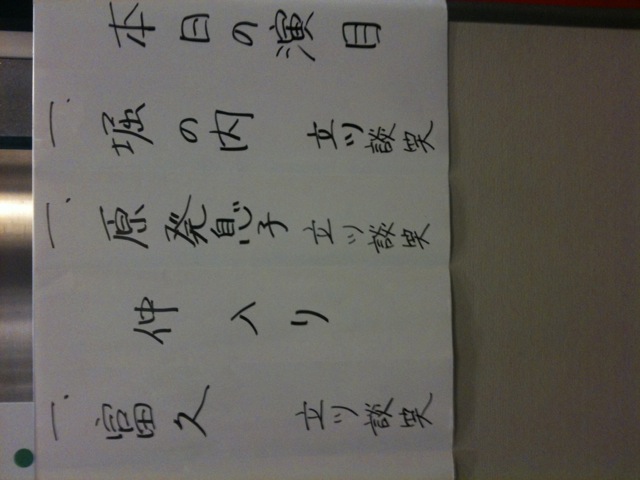 本日の演目
一、堀の内 立川談笑
一、原発息子 立川談笑
仲入り
一、富久 立川談笑